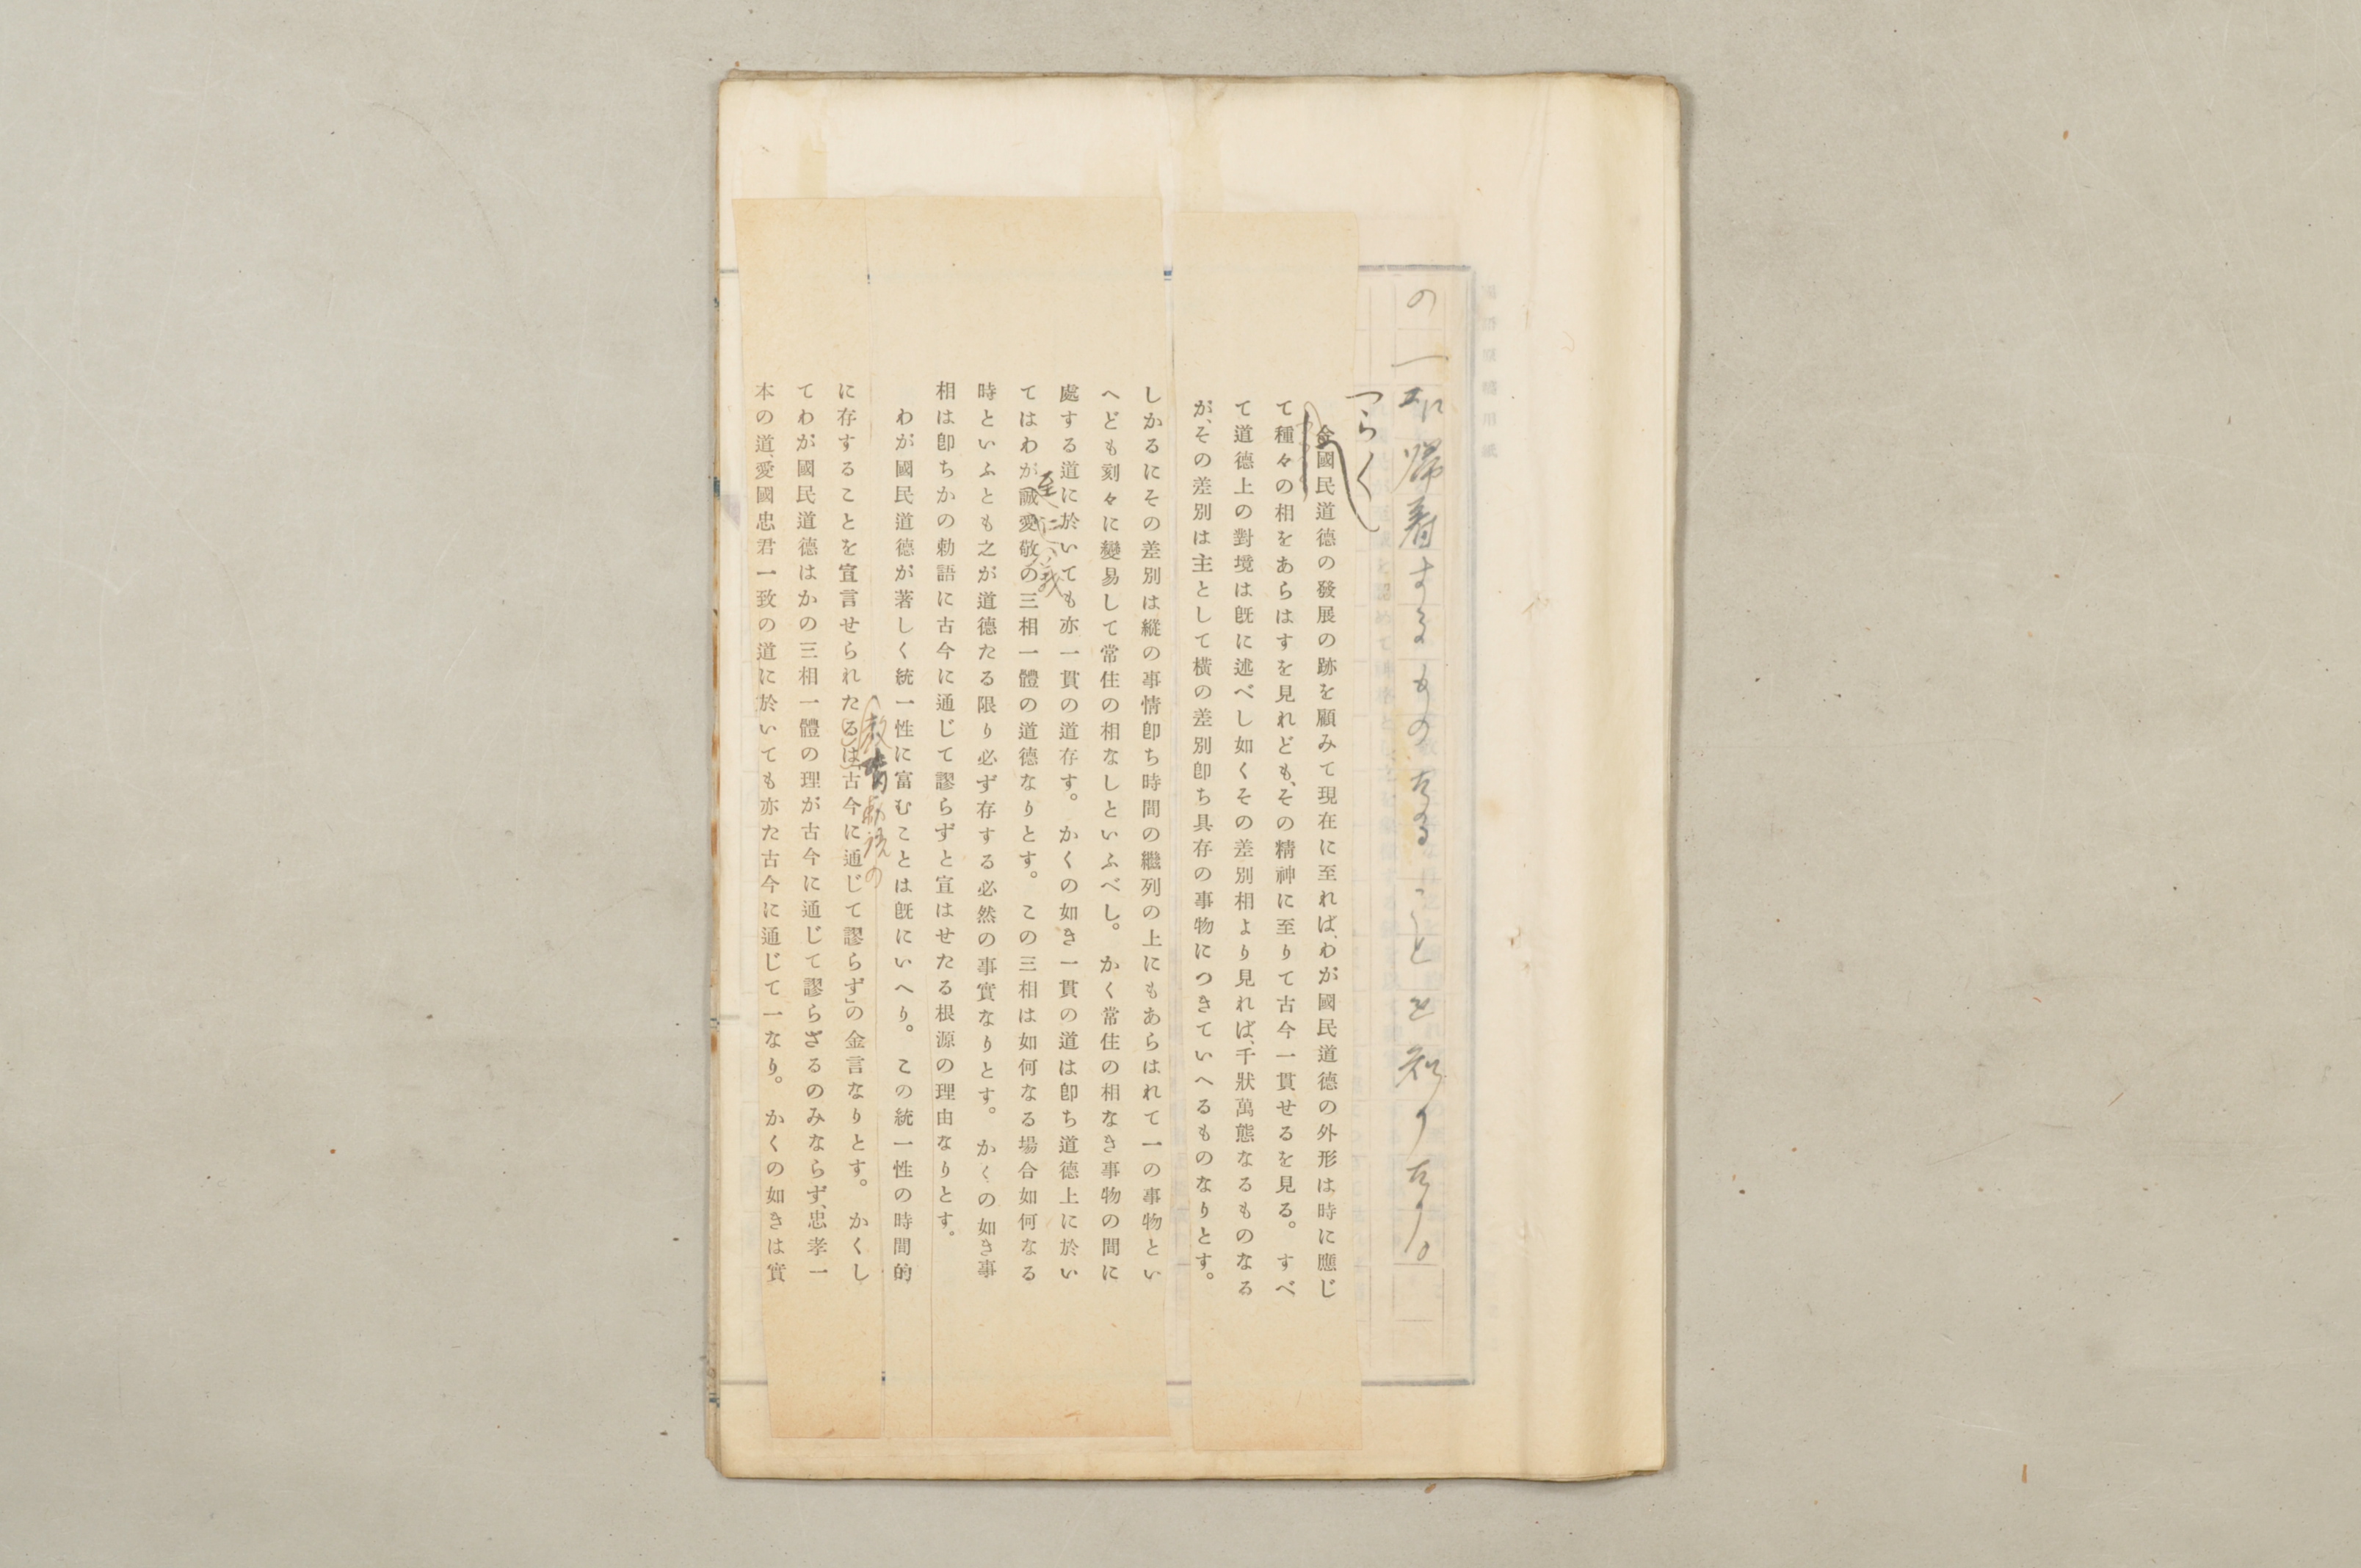 の一点に帰着するものなることを知りたり。
つらく
國民道德の發展の跡を顧みて現在に至れば、わが國民道德の外形は時に應じ
て種々の相をあらはすを見れども、その精神に至りて古今一貫せるを見る。すべ
て道德上の對境は既に述べし如くその差別相より見れば、千狀萬態なるものなる
が、その差別は主として橫の差別卽ち具存の事物につきていへるものなりとす。
しかるにその差別は縱の事情卽ち時間の繼列の上にもあらはれて一の事物とい
へども刻々に變易して常住の相なしといふべし。かく常住の相なき事物の間に
處する道に於いても亦一貫の道存す。かくの如き一貫の道は卽ち道德上に於い
至仁義
てはわが誠愛敬の三相一體の道德なりとす。この三相は如何なる場合如何なる
時といふとも之が道德たる限り必ず存する必然の事實なりとす。かくの如き事
相は卽ちかの勅語に古今に通じて謬らずと宣はせたる根源の理由なりとす。
わが國民道德が著しく統一性に富むことは旣にいへり。この統一性の時間的
敎育勅語の
に存することを宣言せられたる(は)「古今に通じて謬らず」の金言なりとす。かくし
てわが國民道德はかの三相一體の理が古今に通じて謬らざるのみならず、忠孝一
本の道、愛國忠君一致の道に於いても亦た古今に通じて一なり。かくの如きは實